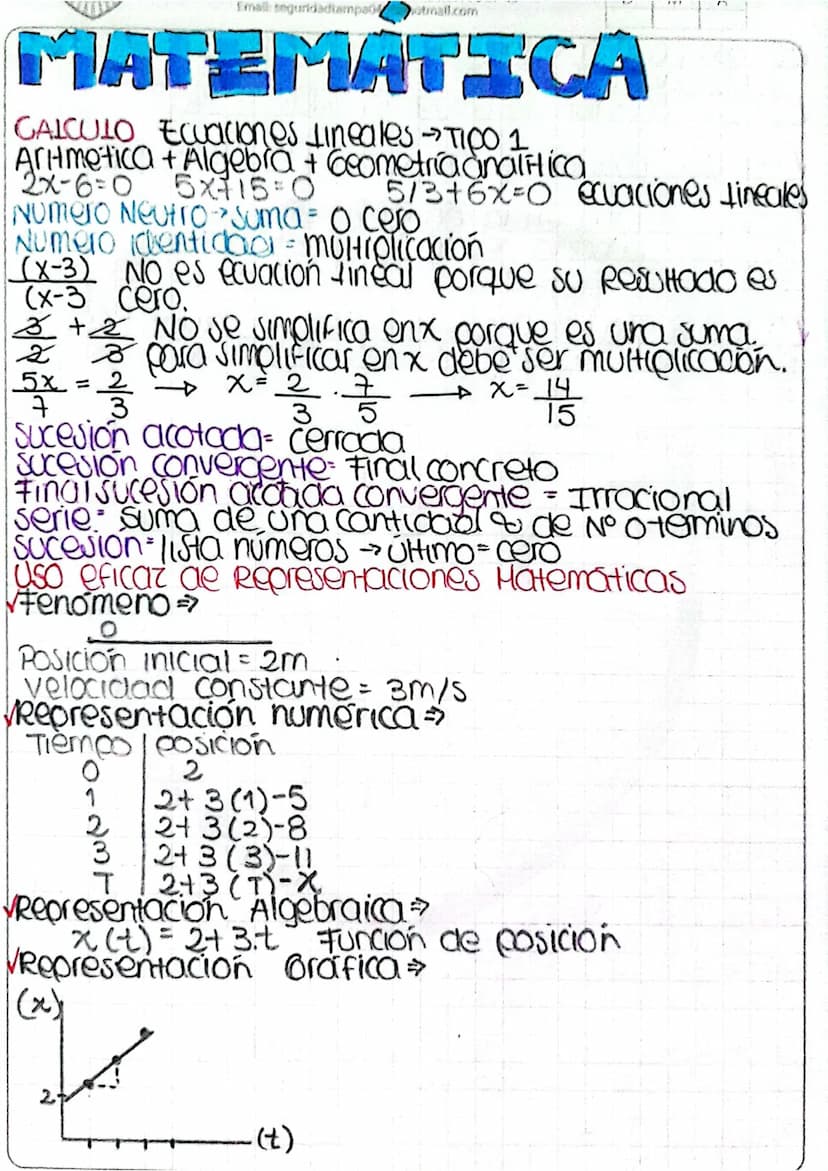 Email: seguridadtampa0 otmail.com
MATEMÁTICA
CALCULO Ecuaciones Lineales → TIPO 1
Aritmetica + Algebra + Geometria analitica
2x-6=0 5x+15=0 5/3+6x=0 ecuaciones lineales
Numero Neutro → suma = 0 cero
Numero identidad = multiplicación
(x-3) No es ecuación lineal porque su resultado es
(x-3 cero.
3/2 + 2/3 No se simplifica en x porque es una suma.
para simplificar en x debe ser multiplicación.
5x/7 = 2/3 → x = 2/3 · 7/5 → x = 14/15
Sucesión acotada = cerrada
Sucesión convergente = Final concreto
Final sucesión acotada convergente = Irracional
Serie = Suma de una cantidad ∞ de N° o teminos
Sucesion = lista números → último = cero
Uso eficaz de Representaciones Matemáticas
√Fenómeno ⇒
0
Posición inicial = 2m
velocidad constante = 3m/s
√Representación numérica ⇒
Tiempo | posición
0 2
1 2+ 3(1)-5
2 2+ 3(2)-8
3 2+ 3(3)-11
T 2+3(T)-x
√Representación Algebraica ⇒
x(t) = 2+3.t Función de posición
√Representación Gráfica ⇒
(x)
2
(t)